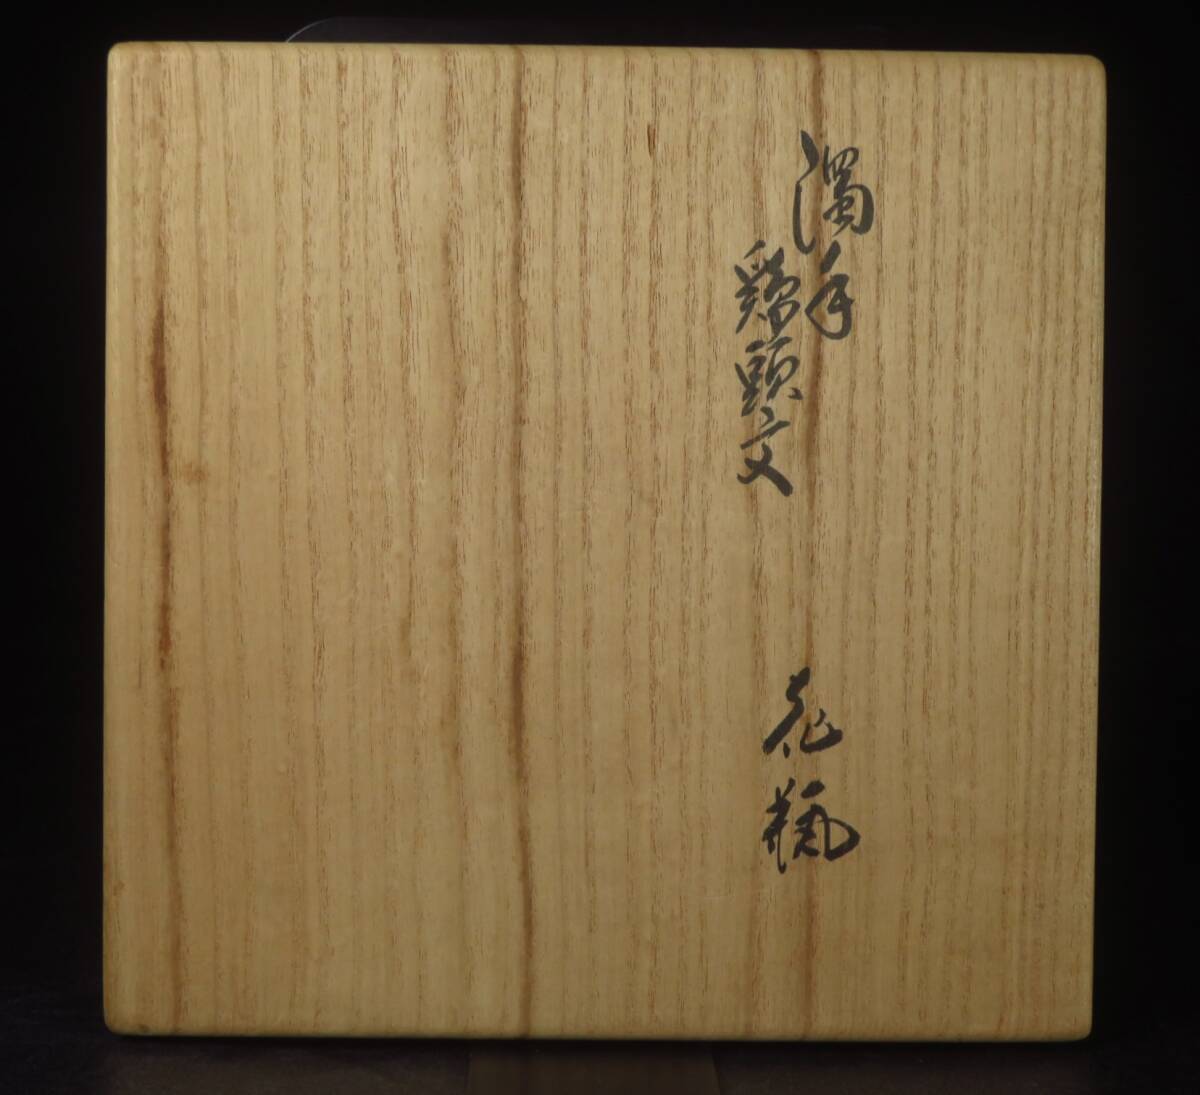 濁手
鶏頭文
花瓶